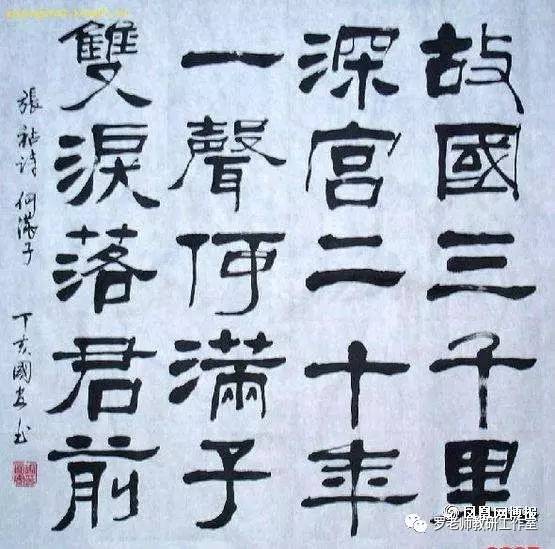 故國三千里
深宮二十年
一聲何滿子
雙淚落君前
張祜詩 何滿子 丁亥國
凤凰网博报
罗老师教研工作室